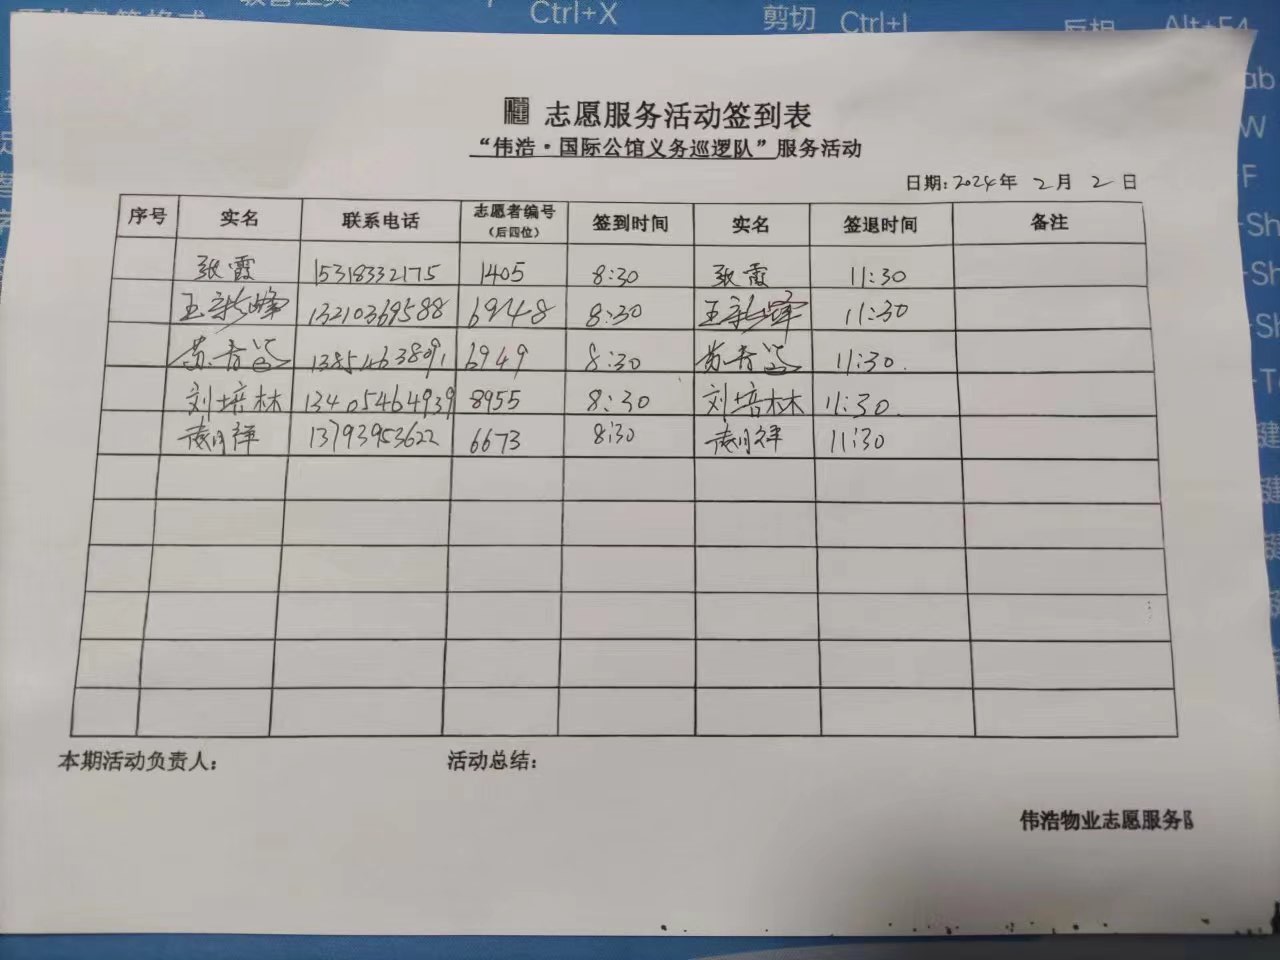 Ctrl+X
剪切
Ctrl+L
反相
志愿服务活动签到表
“伟浩·国际公馆义务巡逻队”服务活动
日期: 2024年 2月 2日
序号 实名 联系电话 志愿者编号(后四位) 签到时间 实名 签退时间 备注
张霞 15318332175 1405 8:30 张霞 11:30
王新峰 13210369588 6948 8:30 王新峰 11:30
13854638091 6949 8:30 11:30
刘培林 13405464939 8955 8:30 刘培林 11:30
13793953622 6673 8:30 11:30
本期活动负责人: 活动总结:
伟浩物业志愿服务队